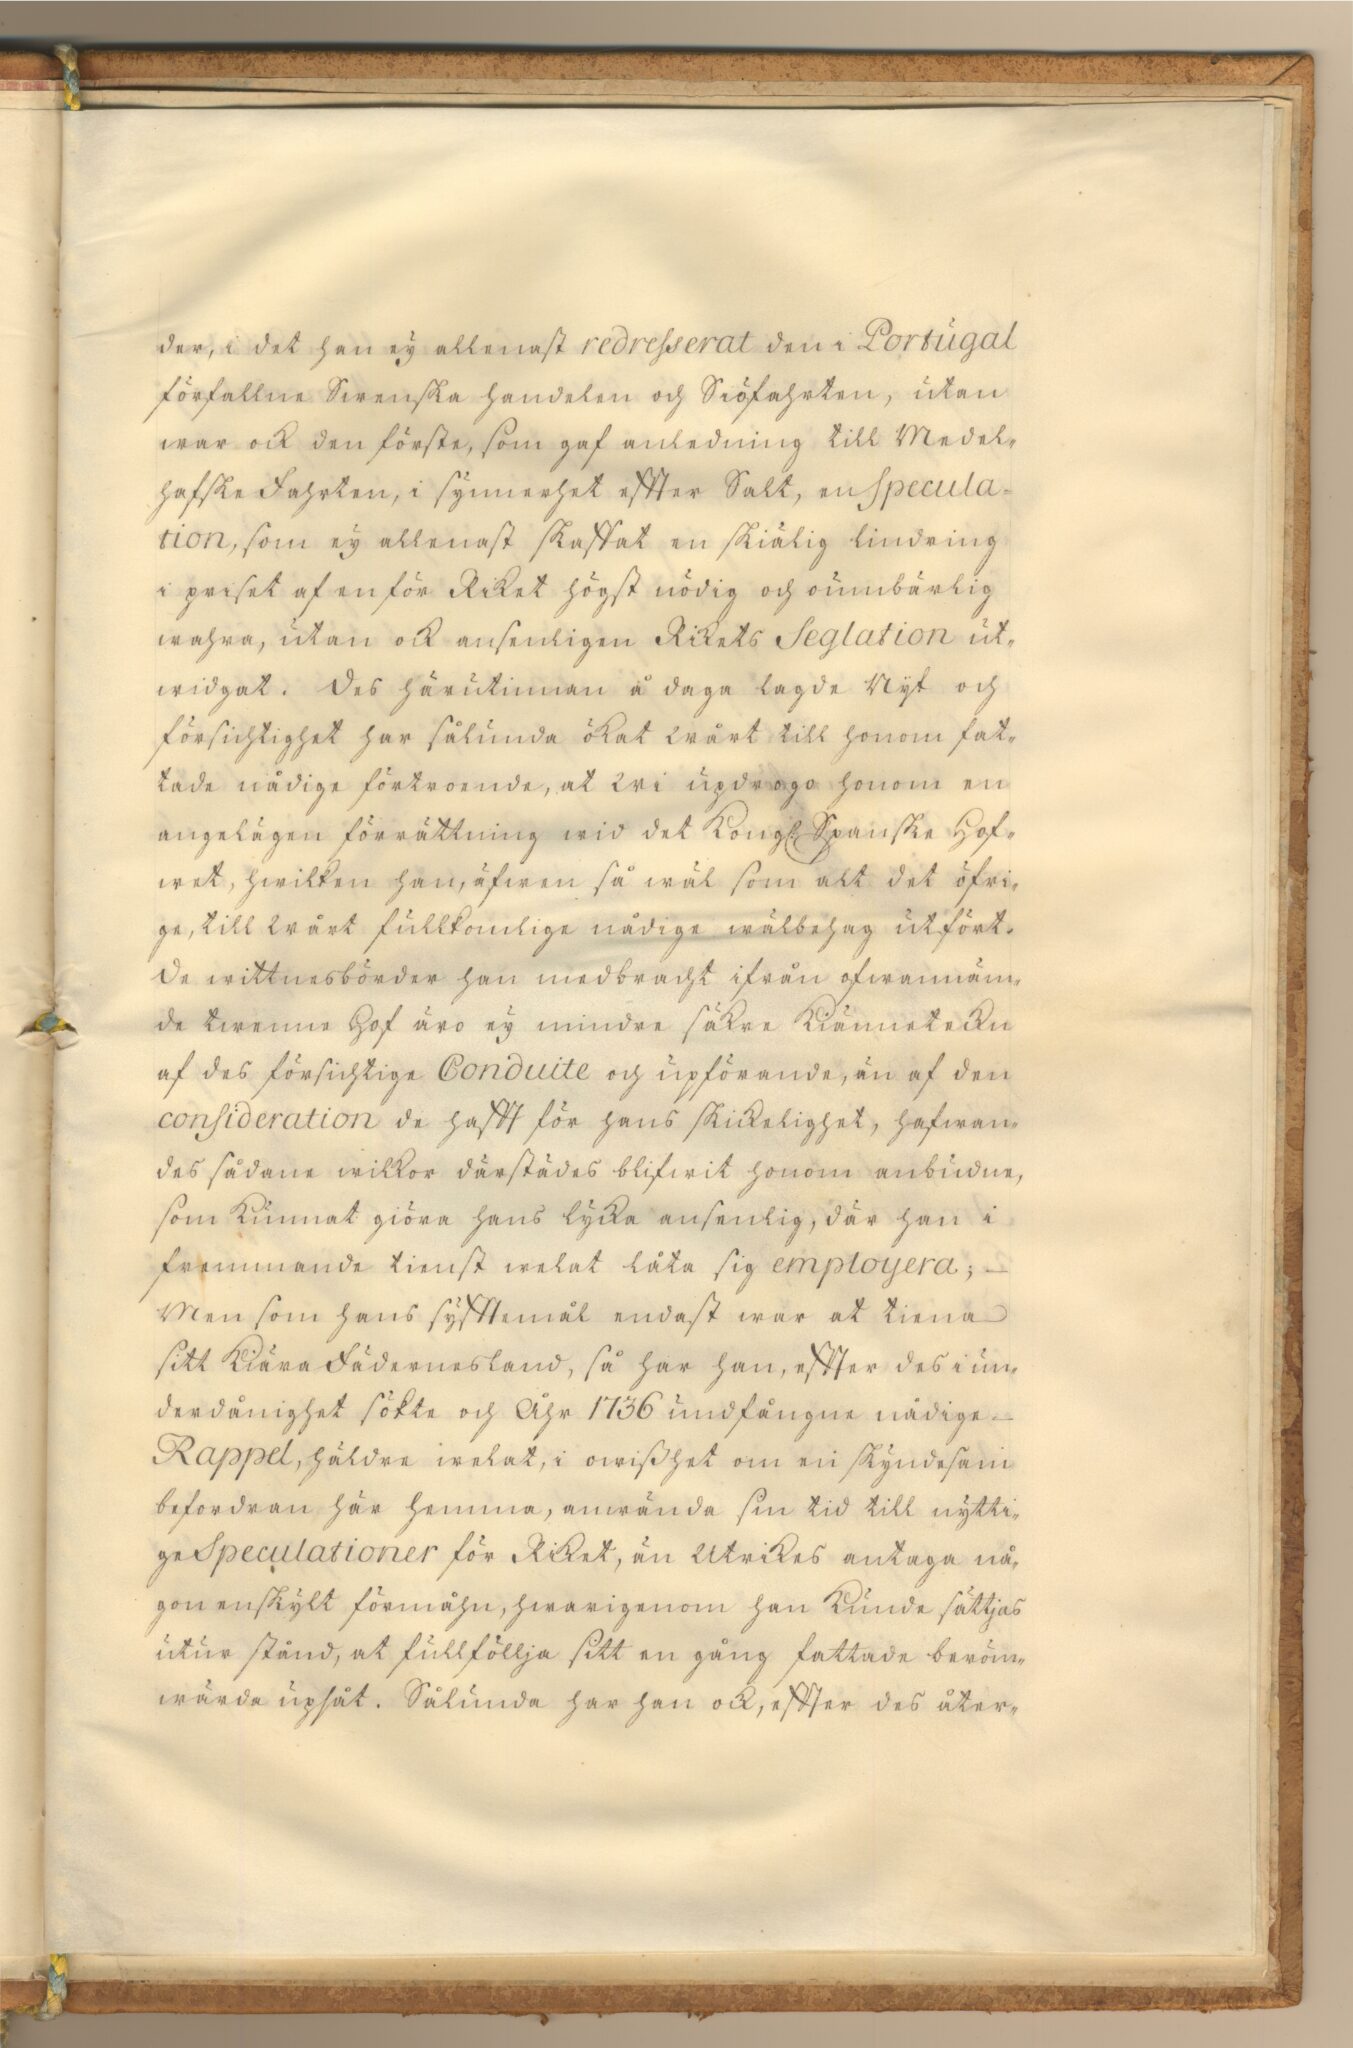 der, i det han ey allenast redresserat den i Portugal
förfallne Swenska handelen och Siöfahrten, utan
war ock den förste, som gaf anledning till Medel-
hafske Fahrten, i synnerhet effter Salt, en Specula-
tion, som ey allenast skaffat en skiälig lindring
i priset af en för Riket högst nödig och oumbärlig
wahra, utan ock ansenligen Rikets Seglation ut-
widgat. Des härutinnan å daga lagde Nyt och
försichtighet har sålunda ökat Wårt till honom fat-
tade nådige förtroende, at Wi updrogo honom en
angelägen förrättning wid det Kongl. Spanske Hof-
wet, hwilken han, äfwen så wäl som alt det öfri-
ge, till Wårt fullkomlige nådige wälbehag utfört.
De wittnesbörder han medbracht ifrån ofwannäm-
de twenne Hof äro ey mindre säkre Kiännetekn
af des försichtige Conduite och upförande, än af den
consideration de hafft för hans skickelighet, hafwan-
des sådane wilkor därstädes blifwit honom anbudne,
som kunnat giöra hans lycka ansenlig, där han i
fremmande tienst welat låta sig employera;
Men som hans syfftemål endast war at tiena
sitt Kiära Fädernesland, så har han, effter des i un-
derdånighet sökte och Åhr 1736 undfångne nådige
Rappel, häldre welat, i owißhet om en skyndesam
befordran här hemma, anwända sin tid till nytti-
ge Speculationer för Riket, än Utrikes antaga nå-
gon enskylt förmåhn, hwarigenom han kunde sättjas
utur stånd, at fullföllja sitt en gång fattade beröm-
wärda upsåt. Sålunda har han ock, effter des åter-